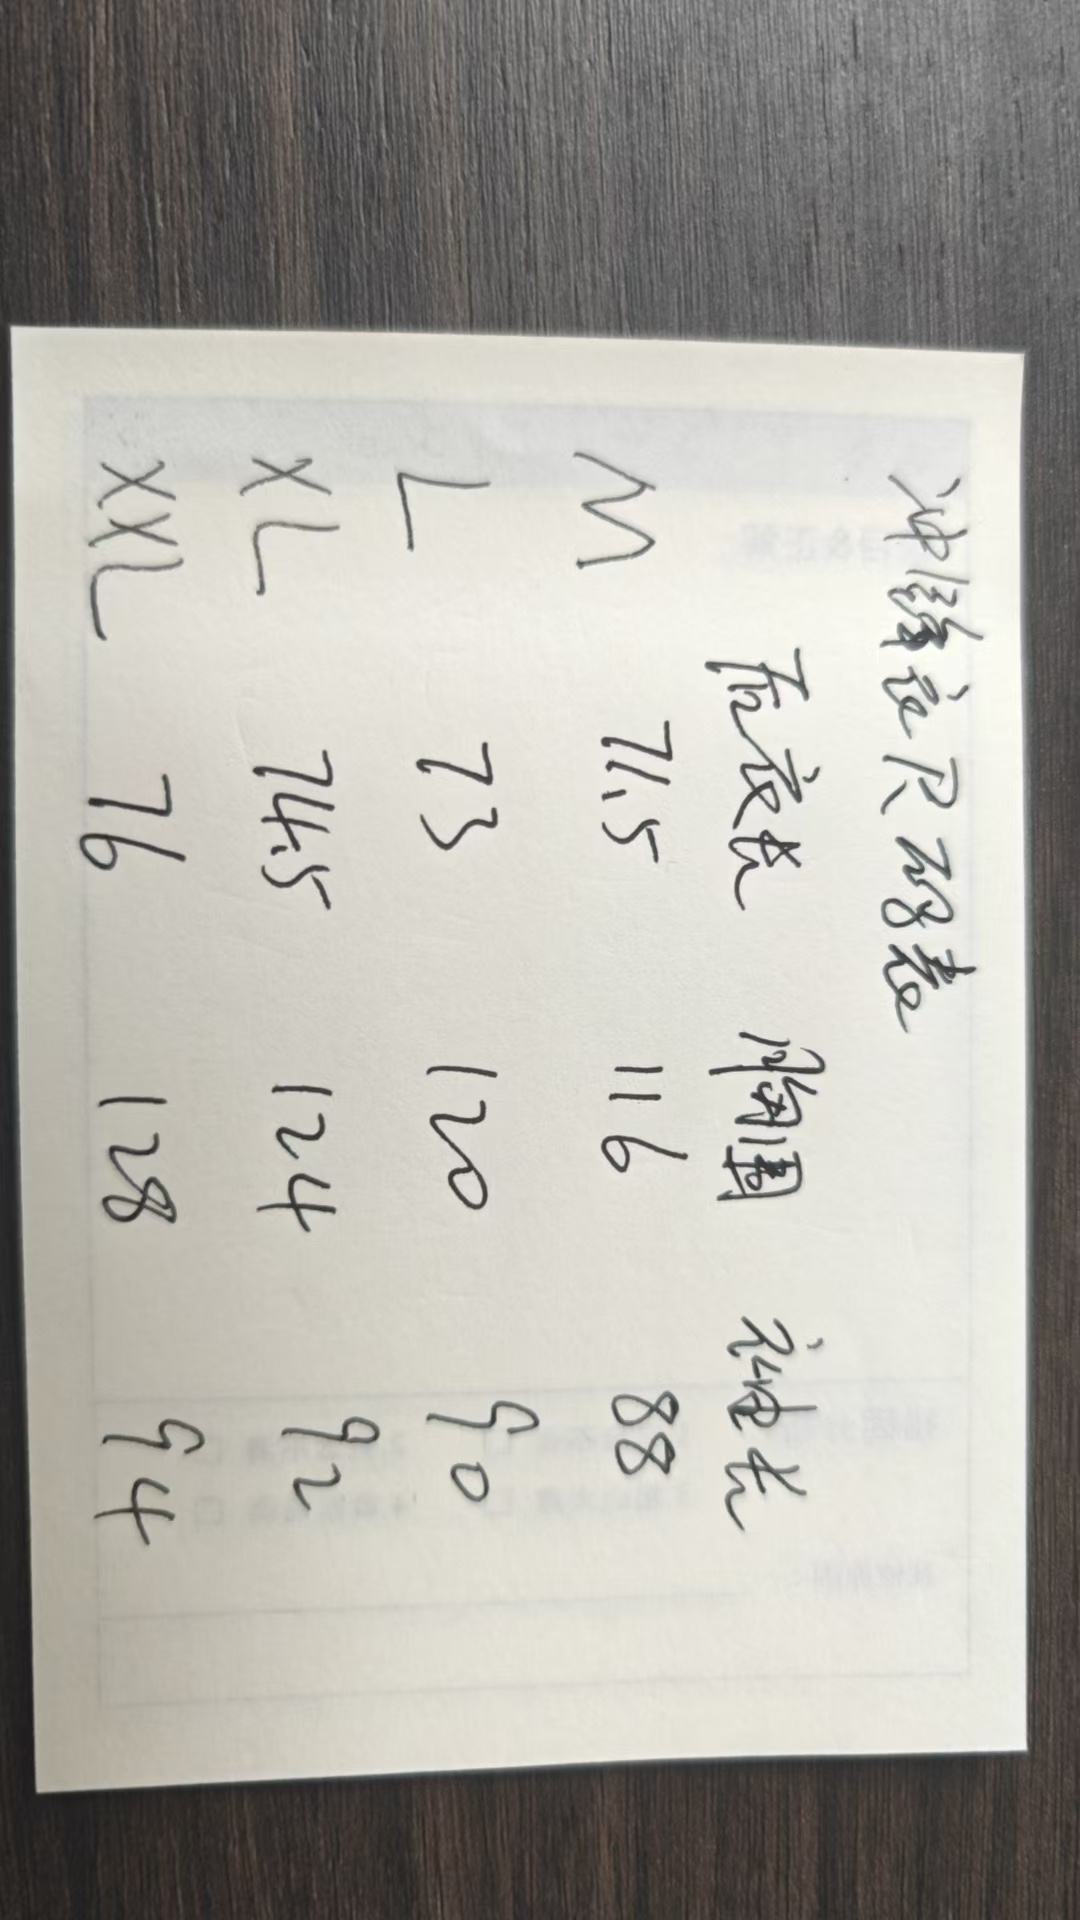 冲锋衣尺码表
后衣长 胸围 袖长
M 71.5 116 88
L 73 120 90
XL 74.5 124 92
XXL 76 128 94